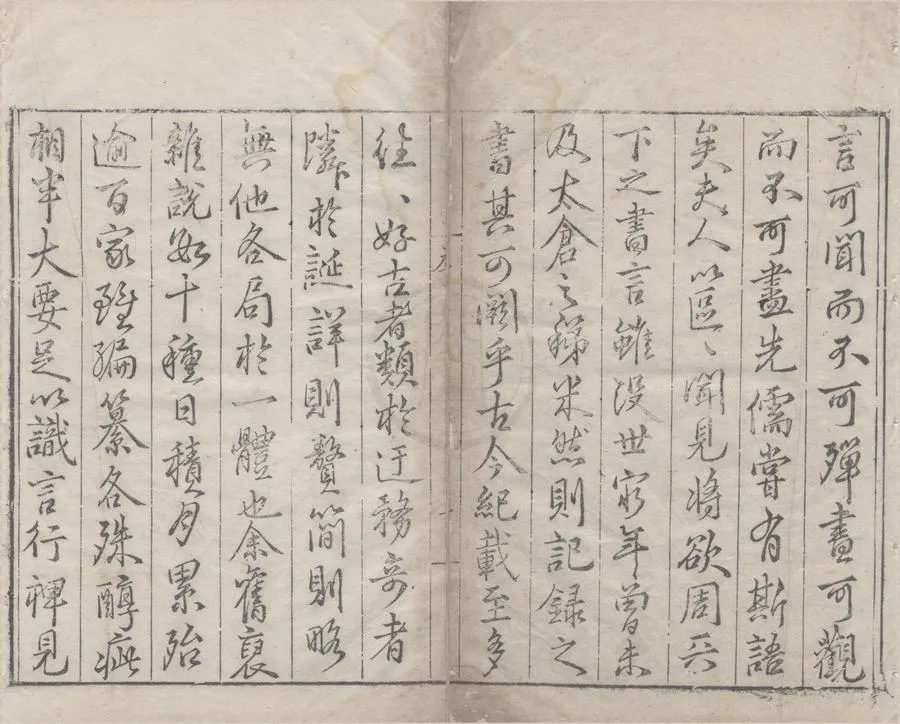 言可聞而不可殫書可觀
而不可盡先儒嘗有斯語
矣夫人以區〻聞見將欲周天
下之書言雖没世窮年曾未
及太倉之稊米然則記録之
書其可闕乎古今紀載至多
序
往〻好古者類於迂務奇者
隣於誕詳則贅簡則略
無他各局於一體也余舊裒
雜説數十種日積月累殆
逾百家雖編纂各殊醇疵
相半大要足以識言行裨見